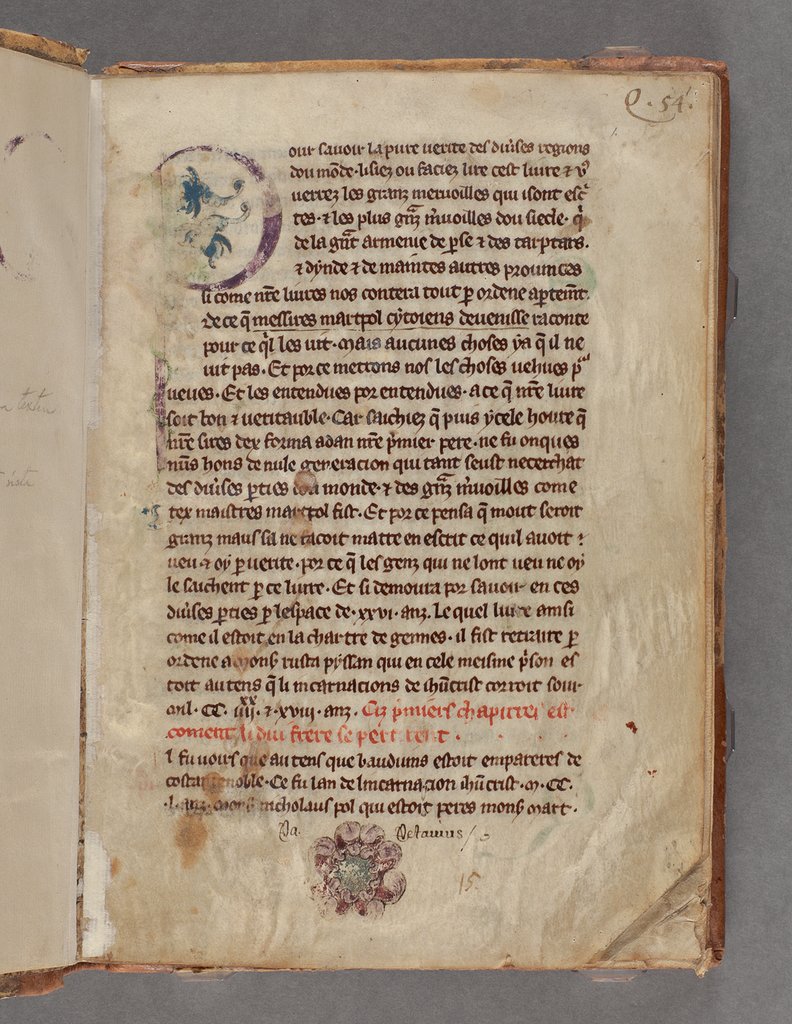 Q. 54.
our sauoir la pure uerite des diũses regions
dou mõde. lisiez ou faciez lire cest liure ⁊ uͦ
uerrez les granz meruoilles qui isont escͥ
tes. ⁊ les plus gñz m̃uoilles dou siecle. q̃
de la gñt armenie de ꝑse ⁊ des tarptars.
⁊ dynde ⁊ de maintes autres prouinces
si come nr̃e liures nos contera tout ꝑ ordene aꝑtemt̃.
de ce q̃ messires marcpol cytoiens deuenisse raconte
pour ce qͥl les uit. Mais aucunes choses ya q̃ il ne
uit pas. Et por ce metrons nos les choses uehues pͬ
ueues. Et les entendues por entendues. a ce q̃ nr̃e liure
soit bon ⁊ ueritauble. Car saichiez q̃ puis ycele houre q̃
nr̃e sires dex forma adan nr̃e p̃mier pere. ne fu onques
nũs hons de nule generacion qui tant seust ne cerchat
des diũses ꝑties dou monde. ⁊ des gñz m̃uoilles come
tex maistres marcpol fist. Et por ce pensa q̃ mout seroit
granz maus sa ne facoit mattre en escrit ce quil auoit
ueu. ⁊ oy ꝑ uerite. por ce q̃ les genz qui ne lont ueu ne oy
le saichent ꝑ ce liure. Et si demoura por sauoir en ces
diũses ꝑties ꝑ lespace de. xxvi. anz. Le quel liure ainsi
come il estoit en la chartre de gennes. il fist retraire ꝑ
ordene a mons̃ rusta pyssan qui en cele meisme p̃son es
toit au tens q̃ li incarnacions de ihũcrist corroit sour
mil. CC. iiij.ˣˣ ⁊. xviii. anz. Ci p̃miers chapitres est
coment li dui frere se partirent.
l fu uoirs que au tens que bauduins estoit empereres de
costantenoble. Ce fu lan de lincarnacion ihũcrist. M. CC.
.l. anz. mons̃ nicholaus pol qui estoit peres mons̃ marc.
Pa. Petauius
15.